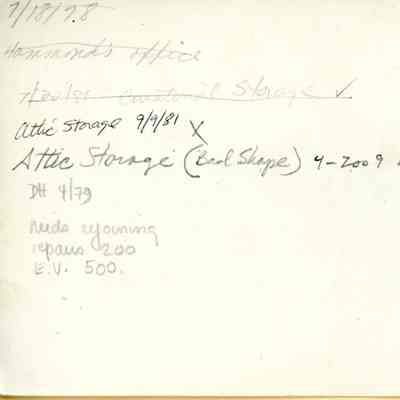 7/18/78
Hammond's office
7/20/81 Curatorial Storage ✓
Attic Storage 9/9/81 X
Attic Storage (Bad Shape) 4-2009
DH 4/79
Needs rejoining
repairs 200
E.V. 500.